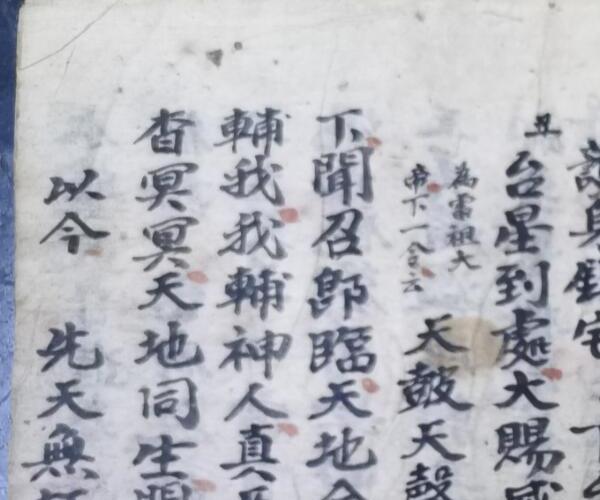 身
丑
台星到處大賜
為雷祖大
帝下一令云
天皷天皷
下聞召即臨天地
輔我我輔神人真
杳冥冥天地同生
以令 先天無